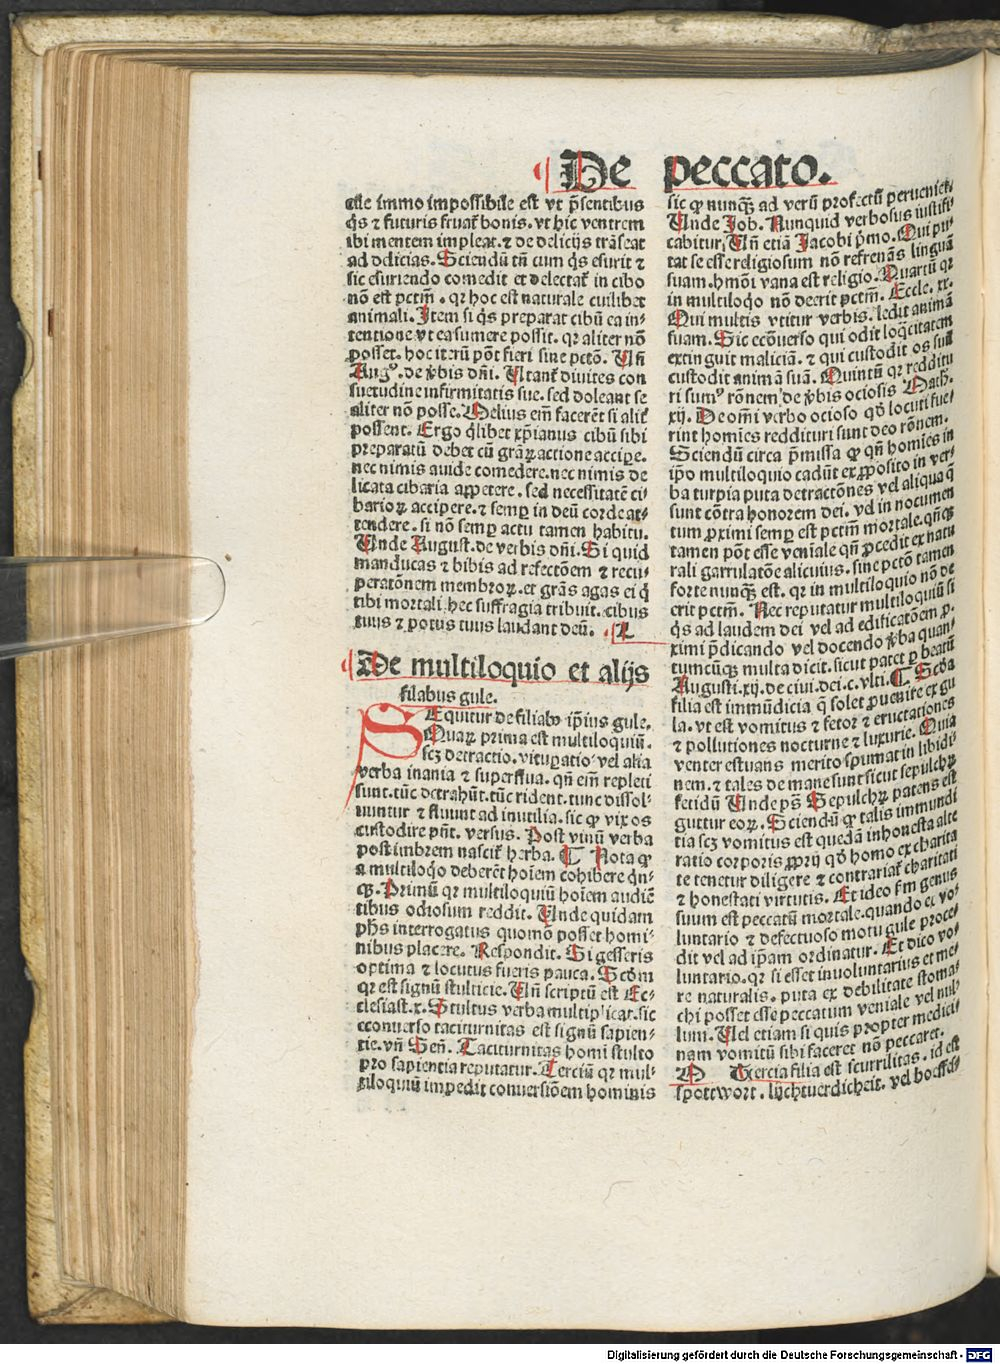 De peccato.
cile immo impossibile est vt p̄sentibus
q̇s ⁊ futuris fruat̃ bonis. vt hic ventrem
ibi mentem impleat. ⁊ de delicijs trāseat
ad delicias. Sciendū tn̄ cum q̇s esurit ⁊
sic esuriendo comedit et delectat̃ in cibo
nō est pctm̄. qꝛ hoc est naturale cuilibet
animali. Item si q̇s preparat cibū ea in-
tentione vt ea sumere possit. qꝛ aliter nō
posset. hoc iterū pōt fieri sine pctō. Uñ
Augꝰ. de v̇bis dñi. Utant̃ diuites con
suetudine infirmitatis sue. sed doleant se
aliter nō posse. Melius em̄ facerēt si alit̃
possent. Ergo q̇libet xp̄ianus cibū sibi
preparatū debet cū gr̄aꝝ actione accipe.
nec nimis auide comedere. nec nimis de
licata cibaria appetere. sed necessitatē ci-
barioꝝ accipere. ⁊ semꝑ in deū corde at-
tendere. si nō semꝑ actu tamen habitu.
Unde August. de verbis dñi. Si quid
manducas ⁊ bibis ad refectōem ⁊ recu-
peratōnem membroꝝ. et gr̄as agas ei q̇
tibi mortali hec suffragia tribuit. cibus
tuus ⁊ potus tuus laudant deū. L
De multiloquio et alijs
filiabus gule.
SEquitur de filiabꝰ ip̄ius gule.
Quaꝝ prima est multiloquiū.
scꝫ detractio. vituꝑatio vel alia
verba inania ⁊ superflua. qñ em̄ repleti
sunt. tūc detrahūt. tūc rident. tunc dissol-
uuntur ⁊ fluunt ad inutilia. sic ꝙ vix os
custodire pñt. versus. Post vinū verba
post imbrem nascit̃ herba. ¶ Nota ꝙ
a multiloq̇o deberēt hoīem cohibere q̇n-
qꝫ. Primū qꝛ multiloquiū hoīem audiē
tibus odiosum reddit. Unde quidam
phs̄ interrogatus quomō posset homi-
nibus placere. Respondit. Si gesseris
optima ⁊ locutus fueris pauca. Scōm
qꝛ est signū stulticie. Uñ scriptū est Ec-
clesiast. x. Stultus verba multiplicat. sic
econuerso taciturnitas est signū sapien-
tie. vñ Sen̄. Taciturnitas homi stulto
pro sapientia reputatur. Terciū qꝛ mul-
tiloquiū impedit conuersiōem hominis
sic ꝙ nunqꝫ̄ ad verū profectū perueniet.
Unde Job. Nunquid verbosus iustifi-
cabitur. Uñ etiā Jacobi p̄mo. Qui pu-
tat se esse religiosum nō refrenās linguā
suam. hmōi vana est religio. Quartū qꝛ
in multiloq̇o nō deerit pctm̄. Eccle. xx.
Qui multis vtitur verbis. ledit animā
suam. Sic ecōuerso qui odit loq̇citatem
extinguit maliciā. ⁊ qui custodit os suū
custodit animā suā. Quintū qꝛ redditu
ri sumꝰ rōnem de v̇bis ociosis Math.
xij. De om̄i verbo ocioso qd̄ locuti fue-
rint homīes reddituri sunt deo rōnem.
Sciendū circa p̄missa ꝙ qñ homīes in
ip̄o multiloquio cadūt ex ꝓposito in ver-
ba turpia puta detractōnes vel aliqua q̄
sunt cōtra honorem dei. vel in nocumen
tum ꝓximi semꝑ est pctm̄ mortale. qñqꝫ
tamen pōt esse veniale qñ ꝓcedit ex natu
rali garrulatōe alicuius. sine pctō tamen
forte nunqꝫ̄ est. qꝛ in multiloquio nō de
erit pctm̄. Nec reputatur multiloquiū si
q̇s ad laudem dei vel ad edificatōem ꝓ-
ximi p̄dicando vel docendo v̇ba quan-
tumcūqꝫ multa dicit. sicut patet ꝑ beatū
Augusti. xij. de ciui. dei. c. vlti. ¶ Scōa
filia est immūdicia q̄ solet ꝓuenire ex gu
la. vt est vomitus ⁊ fetor ⁊ eructationes
⁊ pollutiones nocturne ⁊ luxurie. Quia
venter estuans merito spumat in libidi-
nem. ⁊ tales de mane sunt sicut sepulchꝝ
fetidū Unde ps̄ Sepulchꝝ patens est
guttur eoꝝ. Sciendū ꝙ talis immundi
tia scꝫ vomitus est quedā inhonesta alte
ratio corporis ꝓprij qd̄ homo ex charita
te tenetur diligere ⁊ contrariat̃ charitati
⁊ honestati virtutis. Et ideo fm genus
suum est peccatū mortale. quando ex vo-
luntario ⁊ defectuoso motu gule proce-
dit vel ad ip̄am ordinatur. Et dico vo-
luntario. qꝛ si esset inuoluntarius et me-
re naturalis. puta ex debilitate stoma-
chi posset esse peccatum veniale vel nul-
lum. Uel etiam si quis propter medici-
nam vomitū sibi faceret nō peccaret.
M Tercia filia est scurrilitas. id est
spottwort. lijchtuerdicheit. vel hoeffes-
Digitalisierung gefördert durch die Deutsche Forschungsgemeinschaft - DFG